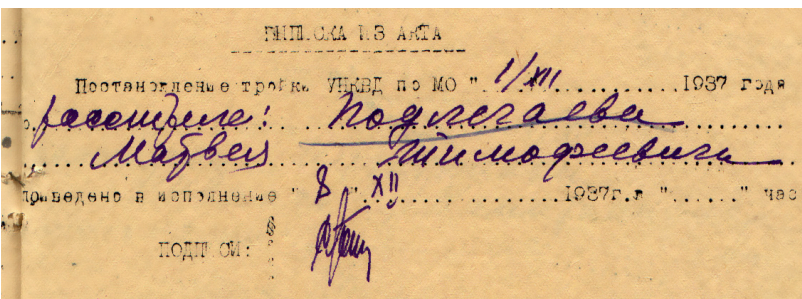 ВЫПИСКА ИЗ АКТА
Постановление тройки УНКВД по МО "1/XII.............1937 года
о расстреле: Подлегаева
Матвея Тимофеевича
приведено в исполнение "8". XII..............1937г.в "......" час
ПОДПИСИ: